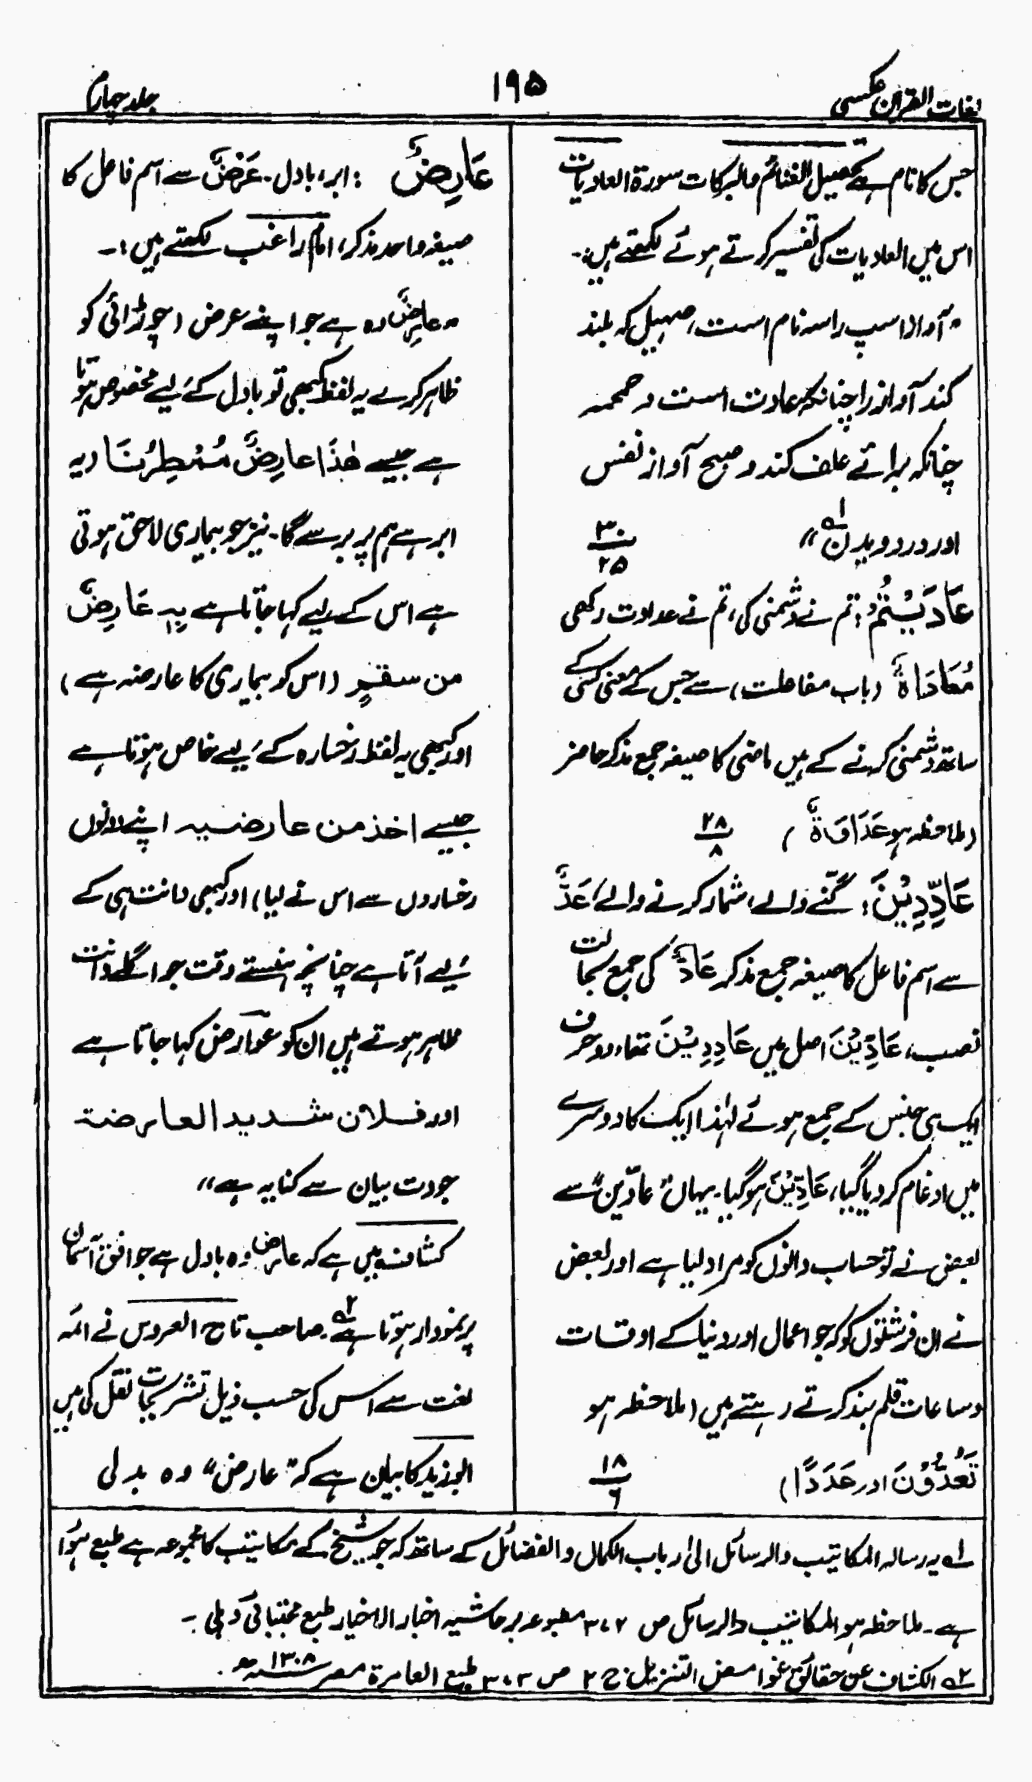 لغات القرآن عکسی
۱۹۵
جلد چہارم
جس کا نام ہے تحصیل الغنائم والبرکات سورة العادیات
اس میں العادیات کی تفسیر کرتے ہوئے لکھتے ہیں:-
"آواز اسپ راسہ نام است، صہیل کہ بلند
کند آواز را چنانکہ عادت است و حمحمہ
چنانکہ برائے علف کند و صبح آواز نفس
او در دویدن" ۱ے ۳۰/۲۵
عَادَيْتُمْ: تم نے دشمنی کی، تم نے عداوت رکھی
مُعَادَاةٌ (باب مفاعلت) سے جس کے معنی کسی کے
ساتھ دشمنی کرنے کے ہیں ماضی کا صیغہ جمع مذکر حاضر
(ملاحظہ ہو عَدَاوَةٌ) ۲۸/۸
عَادِّيْنَ: گننے والے، شمار کرنے والے، عَدٌّ
سے اسم فاعل کا صیغہ جمع مذکر عَادٌّ کی جمع بحالت
نصب، عَادِّيْنَ اصل میں عَادِدِيْنَ تھا، دو حرف
ایک ہی جنس کے جمع ہوئے لہٰذا ایک کا دوسرے
میں ادغام کر دیا گیا، عَادِّيْنَ ہو گیا۔ یہاں "عادّین" سے
بعض نے تو حساب دانوں کو مراد لیا ہے اور بعض
نے ان فرشتوں کو کہ جو اعمال اور دنیا کے اوقات
و ساعات قلم بند کرتے رہتے ہیں (ملاحظہ ہو
تَعُدُّوْنَ اور عَدَدًا) ۱۸/۶
عَارِضٌ: ابر، بادل۔ عَرْضٌ سے اسم فاعل کا
صیغہ واحد مذکر، امام راغب لکھتے ہیں:-
"عارِضٌ وہ ہے جو اپنے عرض (چوڑائی کو
ظاہر کرے یہ لفظ کبھی تو بادل کے لیے مخصوص ہوتا
ہے جیسے هٰذَا عَارِضٌ مُّمْطِرُنَا (یہ
ابر ہے ہم پر برسے گا۔ نیز جو بیماری لاحق ہوتی
ہے اس کے لیے کہا جاتا ہے بِهٖ عَارِضٌ
من سقمٍ (اس کو بیماری کا عارضہ ہے)
اور کبھی یہ لفظ رخسارہ کے لیے خاص ہوتا ہے
جیسے اخذ من عارضیہ اپنے دونوں
رخساروں سے اس نے لیا) اور کبھی دانت ہی کے
لیے آتا ہے چنانچہ ہنستے وقت جو اگلے دانت
ظاہر ہوتے ہیں ان کو عوارض کہا جاتا ہے
اور فلان شدید العارضة
جودت بیان سے کنایہ ہے"
کشاف میں ہے کہ عارض وہ بادل ہے جو افق آسمان
پر نمودار ہوتا ہے ۲ے۔ صاحب تاج العروس نے ائمہ
لغت سے اس کی حسب ذیل تشریحات نقل کی ہیں
ابوزید کا بیان ہے کہ "عارض" وہ بدلی
۱ے یہ رسالہ المکاتیب والرسائل الیٰ ارباب الکمال والفضائل کے ساتھ کہ جو شیخ کے مکاتیب کا مجموعہ ہے طبع ہوا
ہے۔ ملاحظہ ہو المکاتیب والرسائل ص ۳۷۲ مطبوعہ برحاشیہ اخبار الاخیار طبع مجتبائی دہلی۔
۲ے الکشاف عن حقائق غوامض التنزیل ج ۲ ص ۳۷۳ طبع العامرة مصر ۱۳۰۸ھ۔